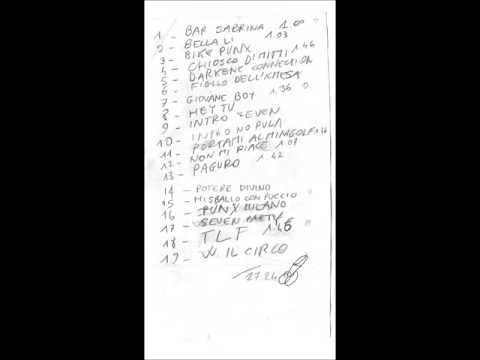 1 - BAR SABRINA 1.00
2 - BELLA LI 1.03
3 - BIKE PUNX
4 - CHIOSCO DI MITTI 1.46
5 - DARKENE CONNECTION
6 - FIGLIO DELL'
7 - GIOVANE BOY 1.36
8 - HEY TU
9 - INTRO SEVEN
10 - NO PULA
11 - PORTAMI AL MINIGOLF
12 - NON MI PIACE 1.07
13 - PAGURO 1.42
14 - POTERE DIVINO
15 - MISBALLO CON PUCCIO
16 - PUNX MILANO
17 - SEVEN PARTY
18 - TLF 1.16
19 - W IL CIRCO
27.24